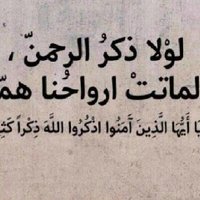 لوْلا ذكرُ الرحمنّ ،
لماتتْ ارواحُنا همّ
يَا أَيُّهَا الَّذِينَ آمَنُوا اذْكُرُوا اللَّهَ ذِكْراً